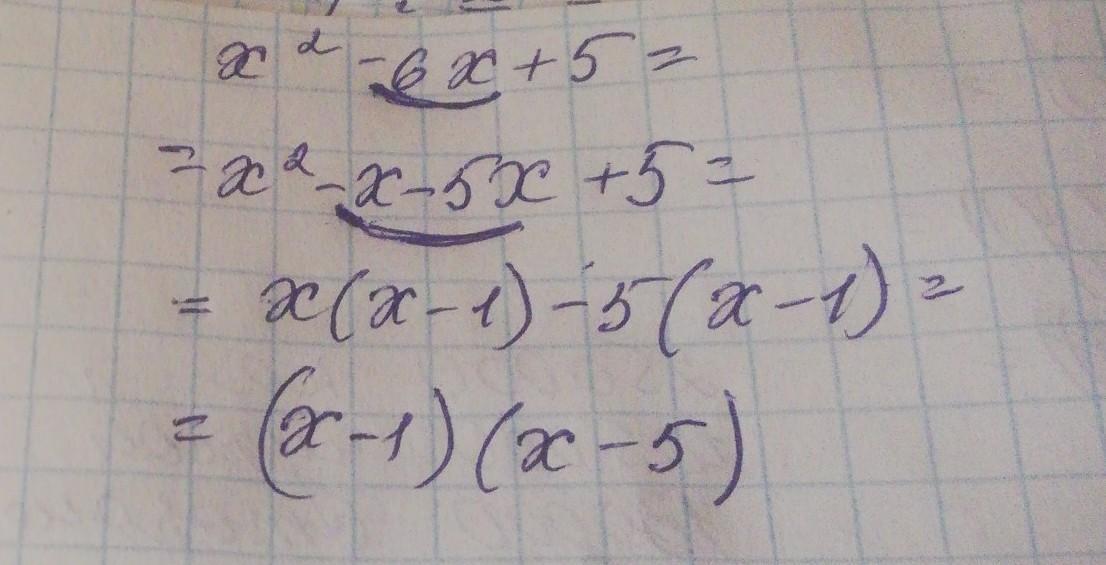 x² - 6x + 5 =
= x² - x - 5x + 5 =
= x(x - 1) - 5(x - 1) =
= (x - 1)(x - 5)